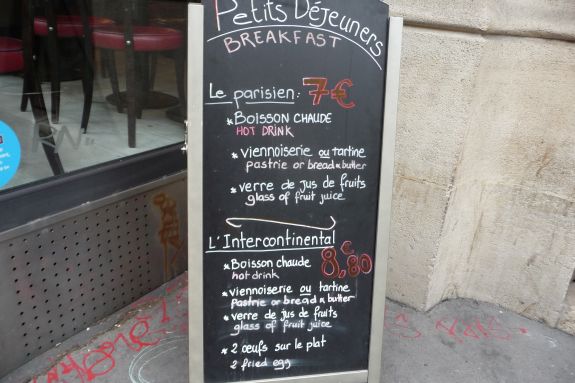 Petits Déjeuners
BREAKFAST
Le parisien: 7€
* BOISSON CHAUDE
HOT DRINK
* viennoiserie ou tartine
pastrie or bread & butter
* verre de jus de fruits
glass of fruit juice
L'Intercontinental
8,80€
* Boisson chaude
hot drink
* viennoiserie ou tartine
pastrie or bread & butter
* verre de jus de fruits
glass of fruit juice
* 2 œufs sur le plat
2 fried egg